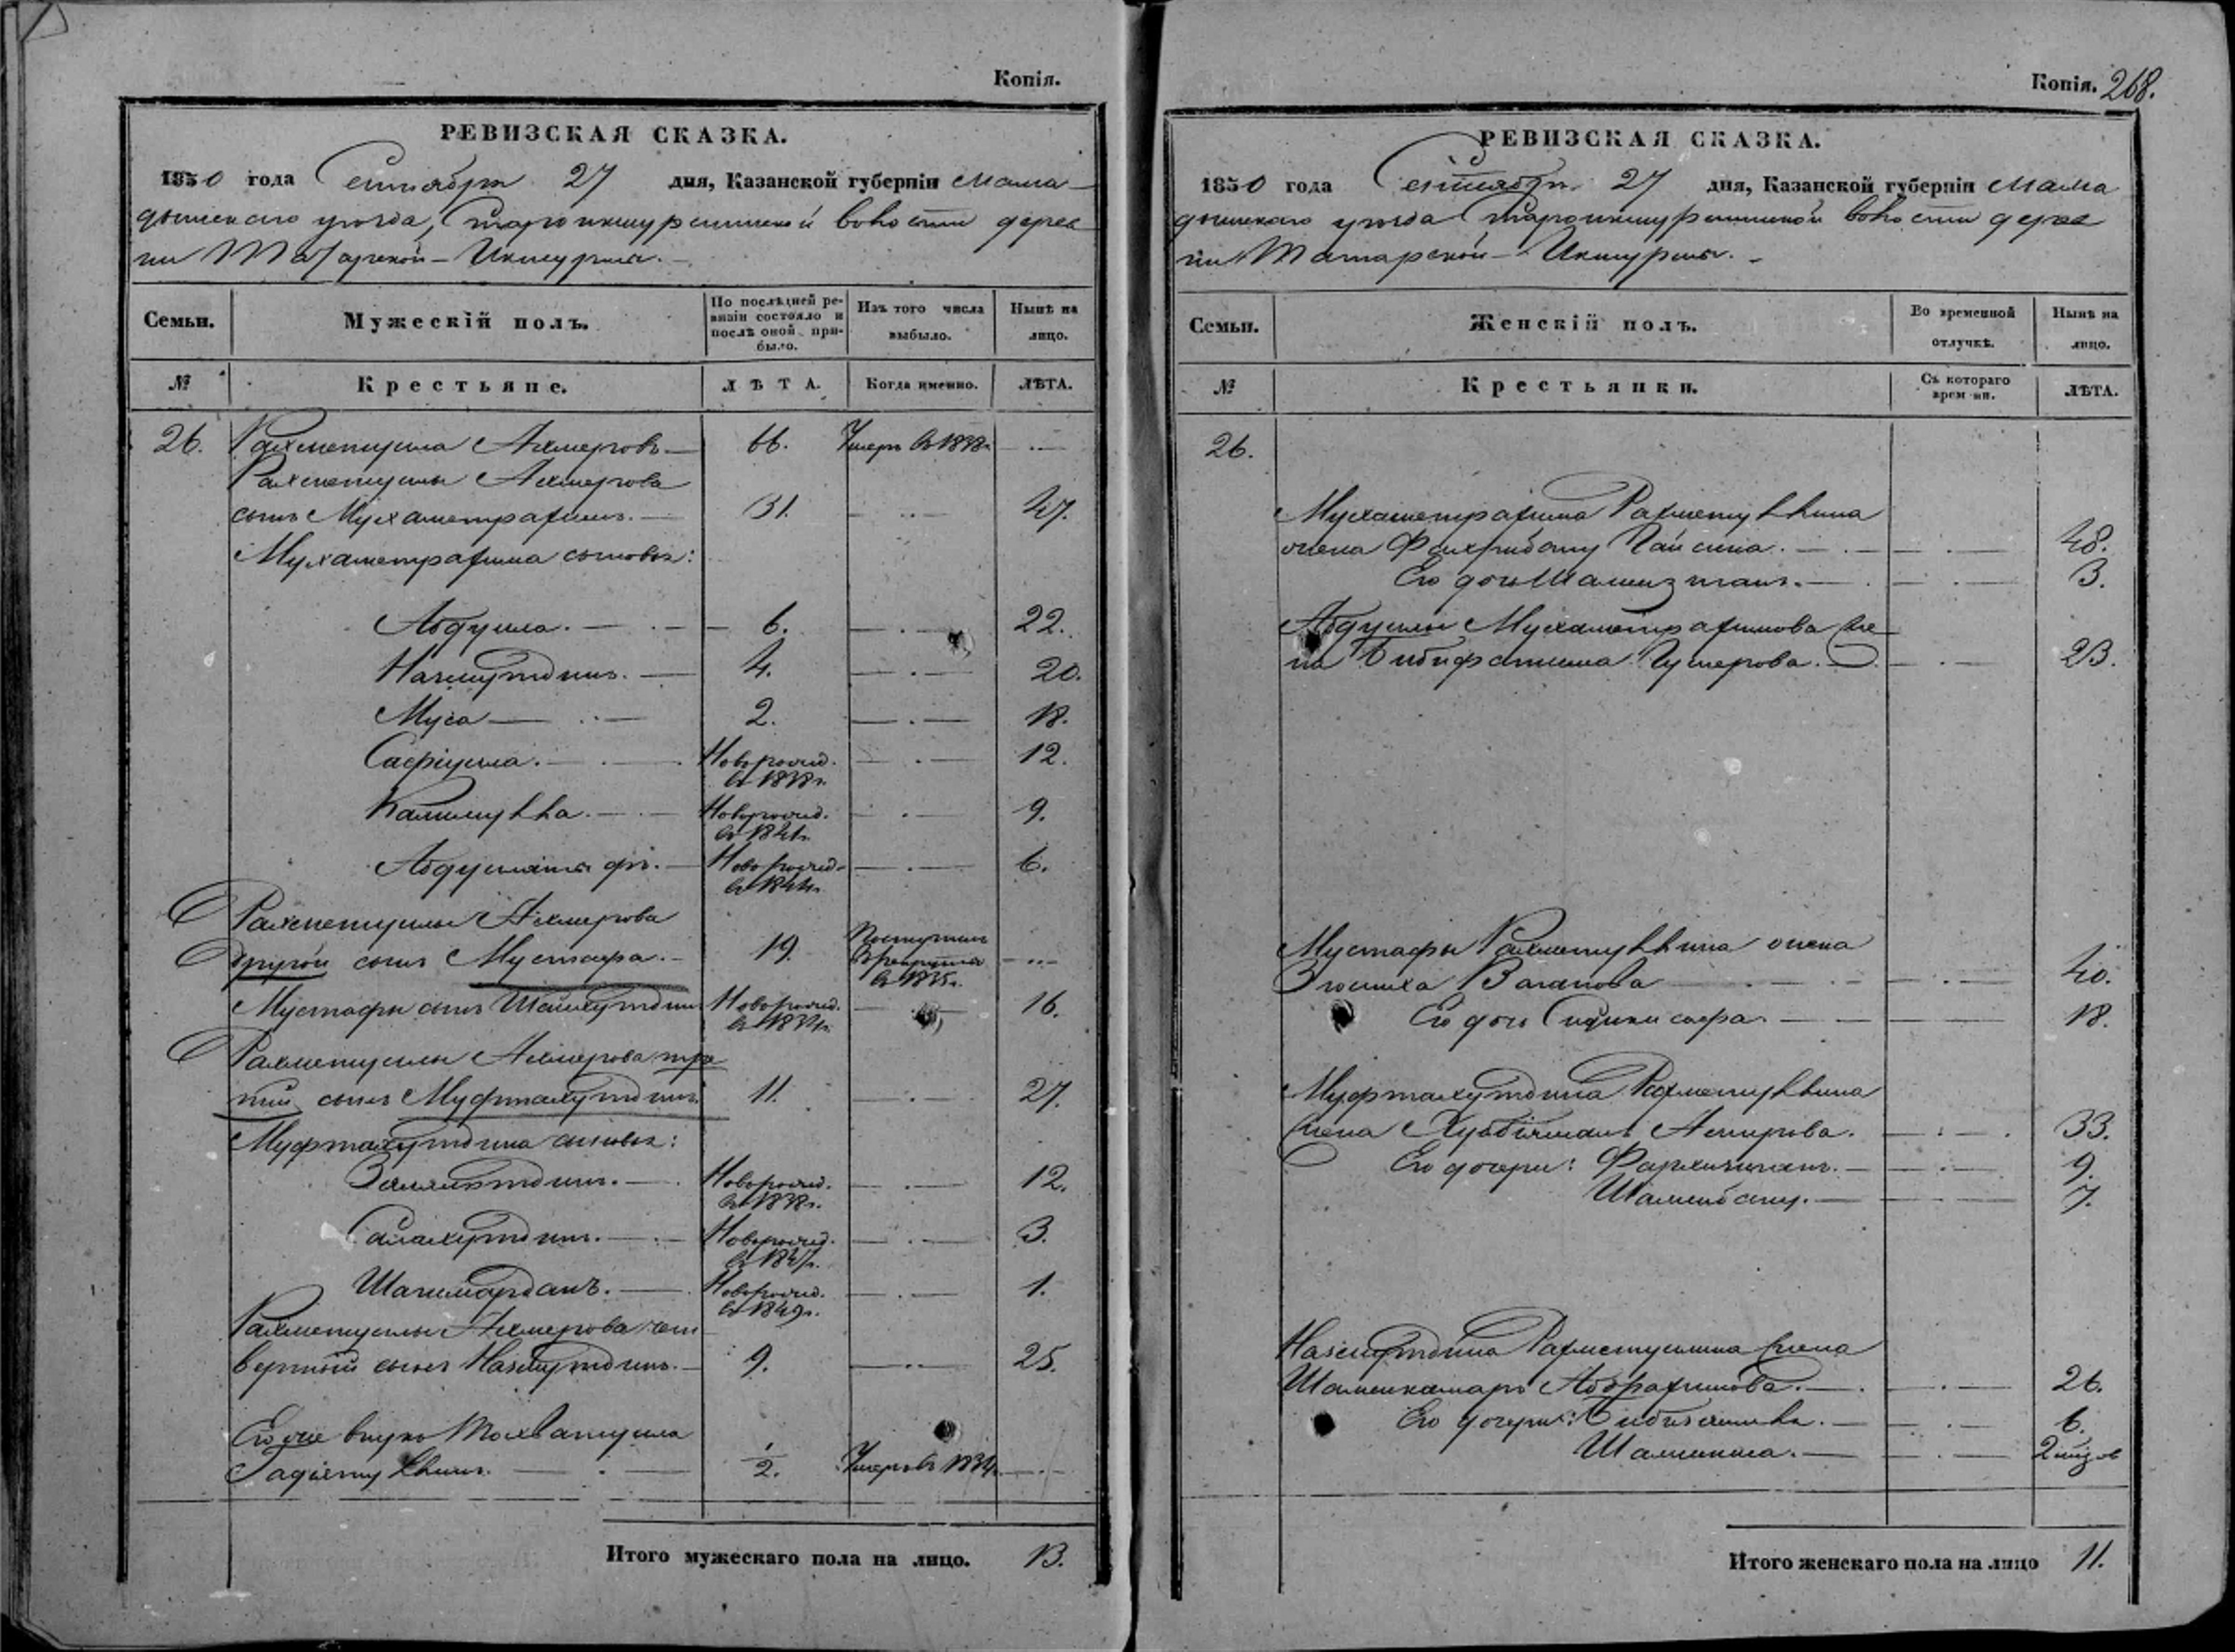 Копія.
РЕВИЗСКАЯ СКАЗКА.
1850 года Сентября 27 дня, Казанской губерніи Мама-
дышскаго уѣзда, Староикшурминской волости дерев
ни Татарской-Икшурмы.
Семьи. Мужескій полъ. По послѣдней ре-визіи состояло и послѣ оной при-было. Изъ того числа выбыло. Нынѣ на лицо.
№ Крестьяне. ЛѢТА. Когда именно. ЛѢТА.
26. Рахметулла Ахмеровъ 66. Умеръ въ 1838г.
Рахметуллы Ахмерова
сынъ Мухаметрахимъ. 31. 47.
Мухаметрахима сыновья:
Абдулла. 6. 22.
Назмутдинъ. 4. 20.
Муса 2. 18.
Сафіулла. Новорожд. 12.
въ 1838г.
Калимулла. Новорожд. 9.
въ 1841г.
Новорожд. 6.
въ 1844г.
Рахметуллы Ахмерова
другой сынъ Мустафа. 19. Поступилъ в рекруты въ 1835г.
Мустафы сынъ Новорожд. 16.
въ 1834г.
Рахметуллы Ахмерова тре
тій сынъ Муфтахутдинъ 11. 27.
Муфтахутдина сыновья:
Залялютдинъ. Новорожд. 12.
въ 1838г.
Салахутдинъ. Новорожд. 3.
въ 1847г.
Шагимарданъ. Новорожд. 1.
въ 1849г.
Рахметуллы Ахмерова чет
вертый сынъ Назмутдинъ. 9. 25.
Его же внукъ Тохватулла
1/2. Умеръ въ 1834г.
Итого мужескаго пола на лицо. 13.
Копія. 268.
РЕВИЗСКАЯ СКАЗКА.
1850 года Сентября 27 дня, Казанской губерніи Мама
дышскаго уѣзда Староикшурминской волости дерев
ни Татарской-Икшурмы.
Семьи. Женскій полъ. Во временной отлучкѣ. Нынѣ на лицо.
№ Крестьянки. Съ котораго времени. ЛѢТА.
26.
Мухаметрахима Рахметуллина
жена Фахрибану 48.
Его дочь 3.
Абдуллы Мухаметрахимова же
на Бибифатима Гумерова. 23.
Мустафы Рахметуллина жена
Зюлиха Ваганова 40.
Его дочь 18.
Муфтахутдина Рахметуллина
жена Амирова. 33.
Его дочери: 9.
Шамсибану. 7.
Назмутдина Рахметуллина жена
Шамсикамаръ Абдрахимова. 26.
Его дочери: 6.
2 нед
Итого женскаго пола на лицо 11.